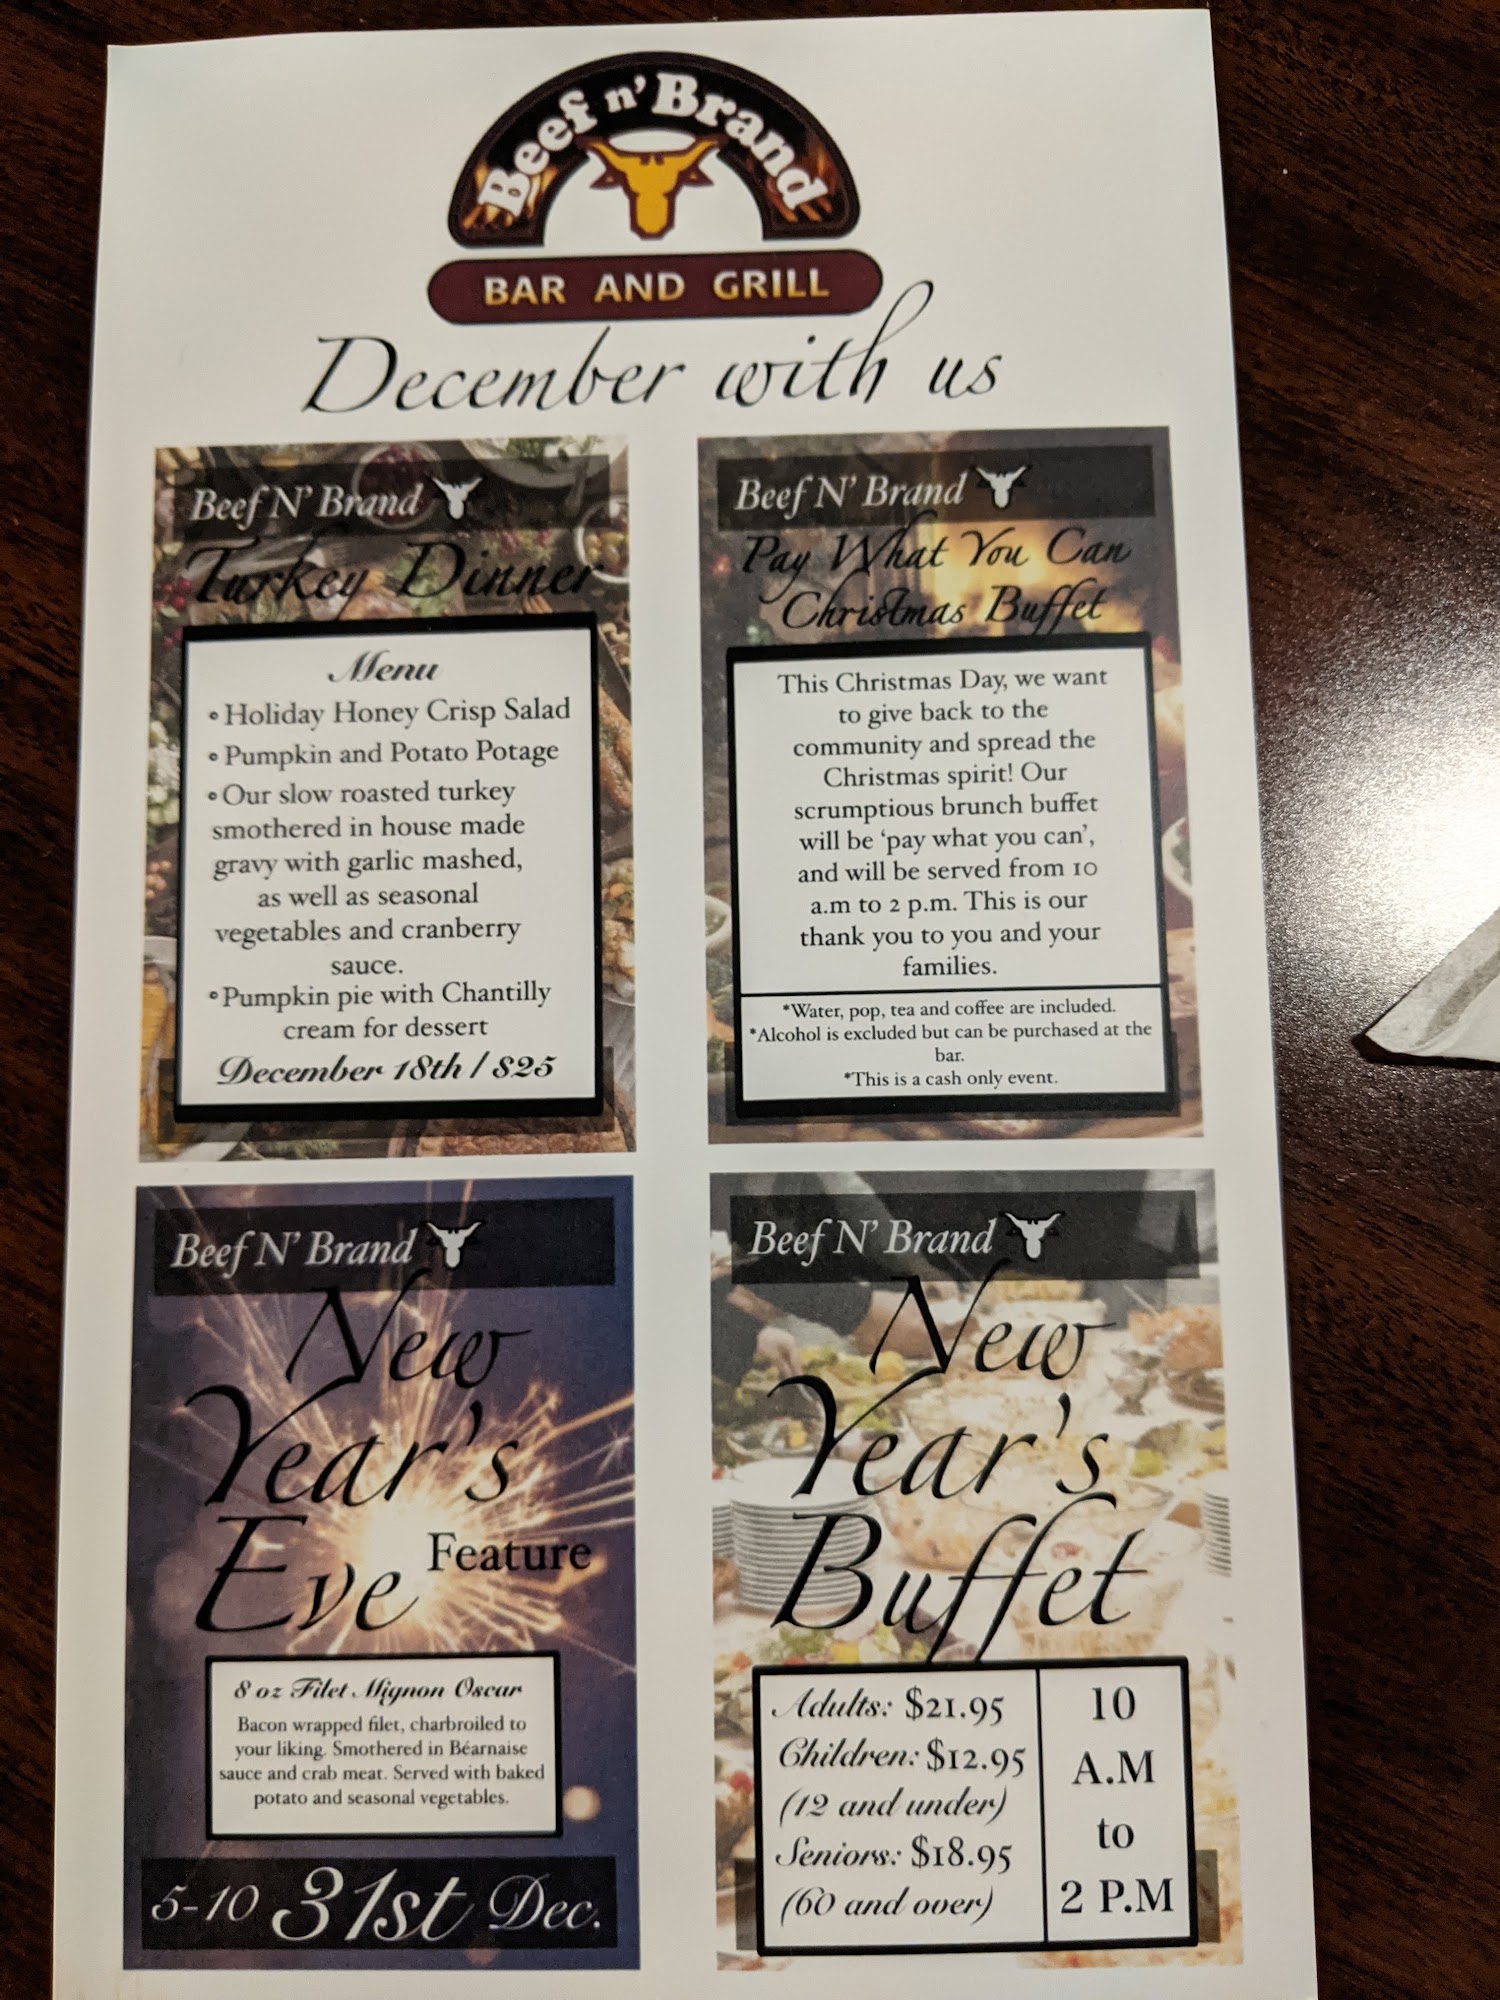 Beef n' Brand
BAR AND GRILL
December with us
Beef N' Brand
Turkey Dinner
Menu
•Holiday Honey Crisp Salad
•Pumpkin and Potato Potage
•Our slow roasted turkey
smothered in house made
gravy with garlic mashed,
as well as seasonal
vegetables and cranberry
sauce.
•Pumpkin pie with Chantilly
cream for dessert
December 18th / $25
Beef N' Brand
Pay What You Can
Christmas Buffet
This Christmas Day, we want
to give back to the
community and spread the
Christmas spirit! Our
scrumptious brunch buffet
will be 'pay what you can',
and will be served from 10
a.m to 2 p.m. This is our
thank you to you and your
families.
*Water, pop, tea and coffee are included.
*Alcohol is excluded but can be purchased at the
bar.
*This is a cash only event.
Beef N' Brand
New
Year's
Eve Feature
8 oz Filet Mignon Oscar
Bacon wrapped filet, charbroiled to
your liking. Smothered in Béarnaise
sauce and crab meat. Served with baked
potato and seasonal vegetables.
5-10 31st Dec.
Beef N' Brand
New
Year's
Buffet
Adults: $21.95
Children: $12.95
(12 and under)
Seniors: $18.95
(60 and over)
10
A.M
to
2 P.M